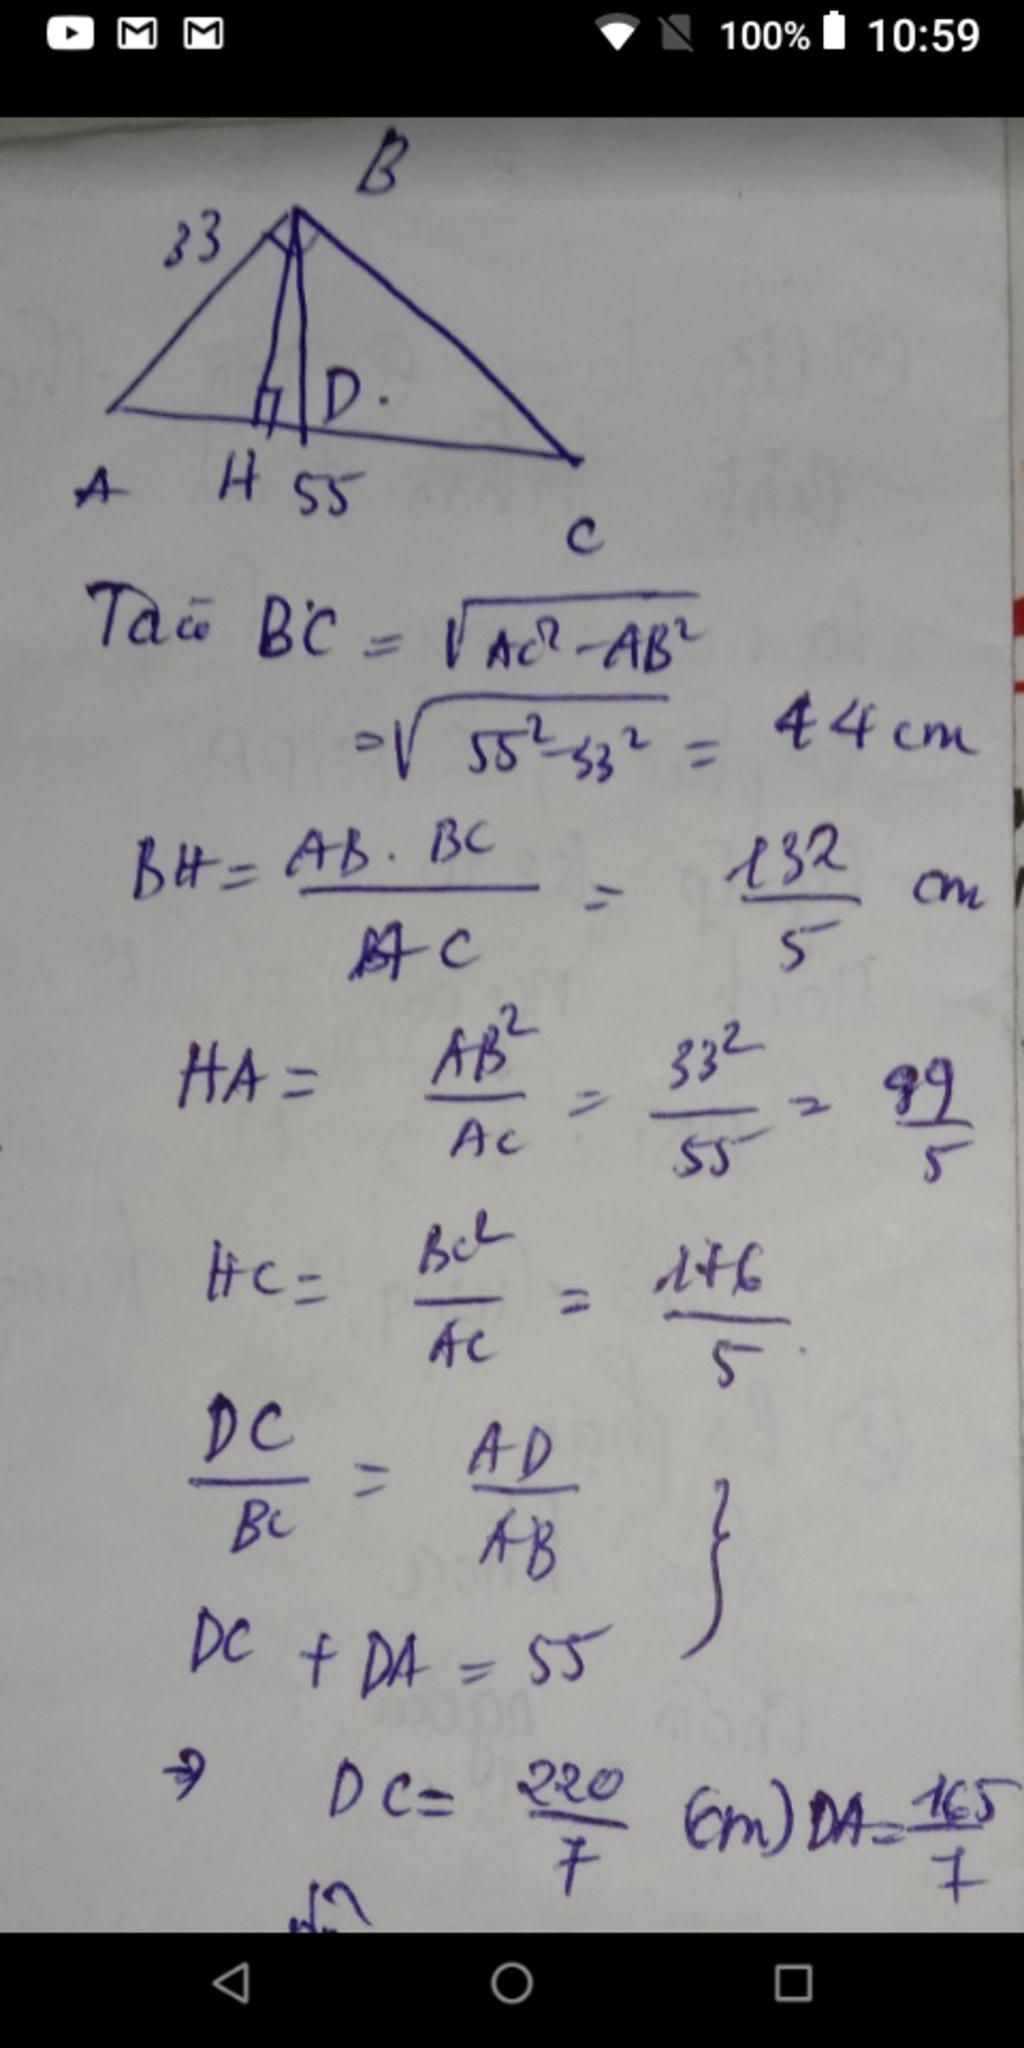 100% 10:59
B
33
D.
A H 55
C
Ta có BC = √AC² - AB²
= √55² - 33² = 44 cm
BH = AB . BC / AC = 132 / 5 cm
HA = AB² / AC = 33² / 55 = 99 / 5
HC = BC² / AC = 176 / 5.
DC / BC = AD / AB }
DC + DA = 55
→ DC = 220 / 7 (cm) DA = 165 / 7